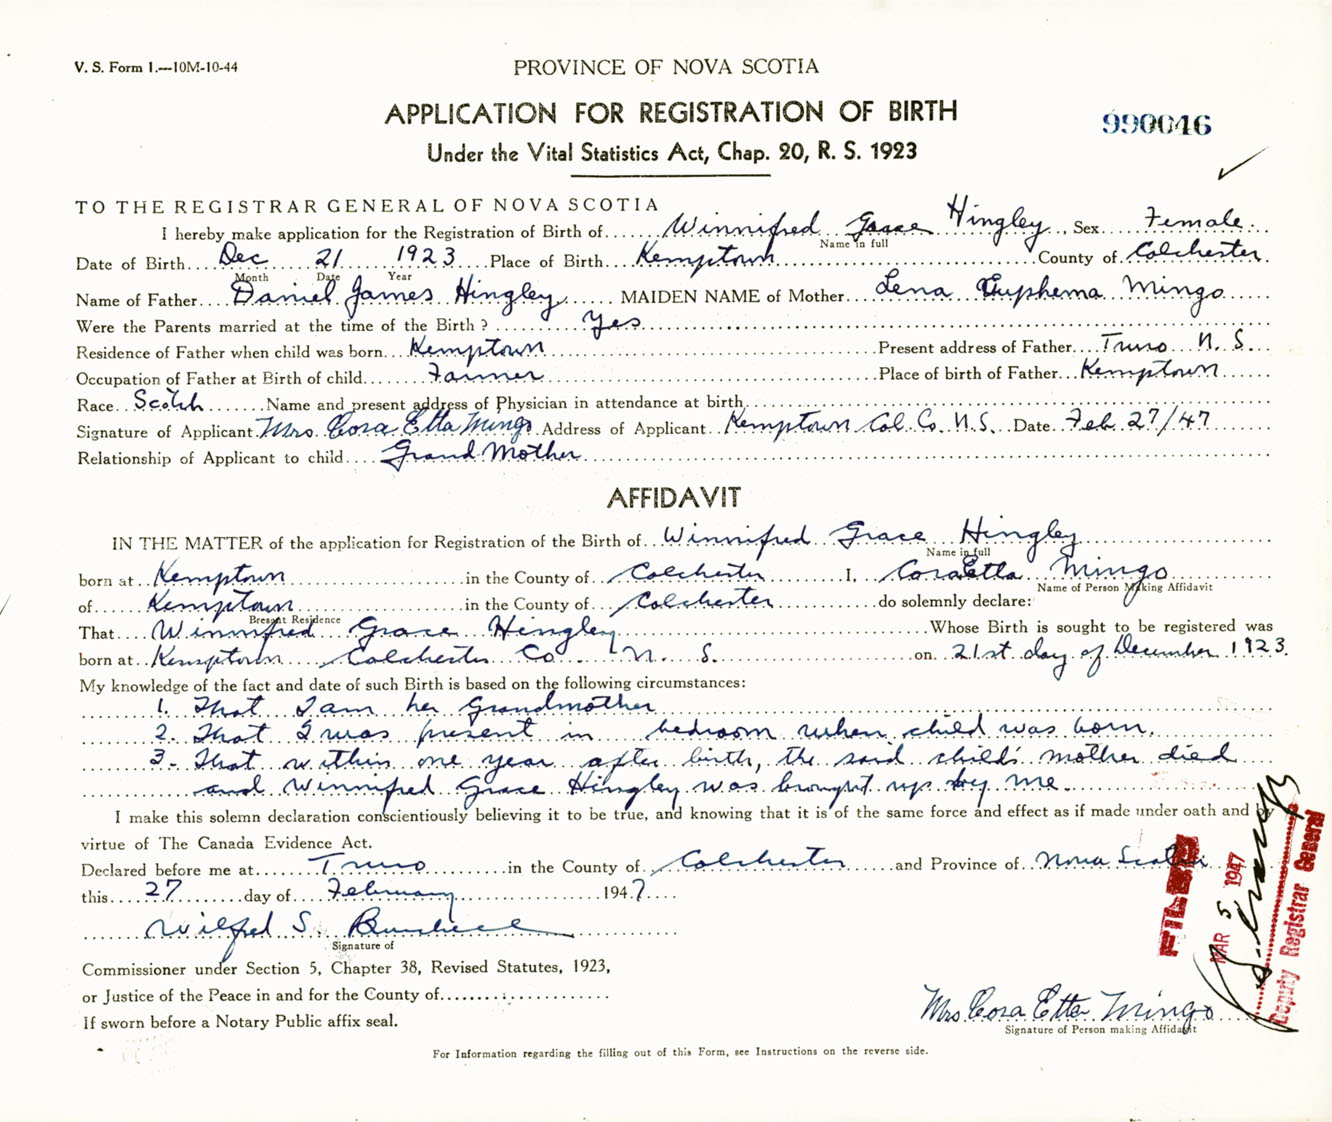 V. S. Form 1.—10M-10-44
PROVINCE OF NOVA SCOTIA
APPLICATION FOR REGISTRATION OF BIRTH
990046
Under the Vital Statistics Act, Chap. 20, R. S. 1923
TO THE REGISTRAR GENERAL OF NOVA SCOTIA
I hereby make application for the Registration of Birth of Winnifred Grace Hingley, Sex Female
Name in full
Date of Birth Dec 21 1923 Place of Birth Kemptown County of Colchester
Month Date Year
Name of Father Daniel James Hingley MAIDEN NAME of Mother Lena Euphema Mingo
Were the Parents married at the time of the Birth? Yes
Residence of Father when child was born Kemptown Present address of Father Truro N. S.
Occupation of Father at Birth of child Farmer Place of birth of Father Kemptown
Race Scotch Name and present address of Physician in attendance at birth
Signature of Applicant Mrs. Cora Etta Mingo Address of Applicant Kemptown Col. Co. N.S. Date Feb. 27/47
Relationship of Applicant to child Grand Mother
AFFIDAVIT
IN THE MATTER of the application for Registration of the Birth of Winnifred Grace Hingley
Name in full
born at Kemptown in the County of Colchester I, Cora Etta Mingo
Name of Person Making Affidavit
of Kemptown in the County of Colchester do solemnly declare:
Present Residence
That Winnifred Grace Hingley Whose Birth is sought to be registered was
born at Kemptown Colchester Co. N. S. on 21st day of December 1923.
My knowledge of the fact and date of such Birth is based on the following circumstances:
1. That I am her Grandmother
2. That I was present in bedroom when child was born.
3. That within one year after birth, the said child's mother died
and Winnifred Grace Hingley was brought up by me.
I make this solemn declaration conscientiously believing it to be true, and knowing that it is of the same force and effect as if made under oath and by
virtue of The Canada Evidence Act.
Declared before me at Truro in the County of Colchester and Province of Nova Scotia
this 27 day of February 1947
Wilfred S.
Signature of
Commissioner under Section 5, Chapter 38, Revised Statutes, 1923,
or Justice of the Peace in and for the County of
If sworn before a Notary Public affix seal.
Mrs Cora Etta Mingo
Signature of Person making Affidavit
For Information regarding the filling out of this Form, see Instructions on the reverse side.
FILED
MAR 5 1947
Deputy Registrar General